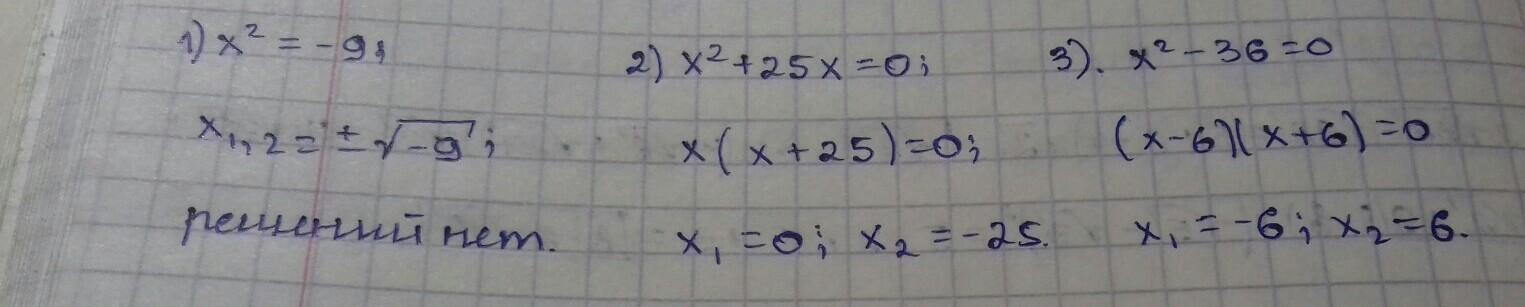 1) x² = -9;
x₁,₂ = ± √-9;
решений нет.
2) x² + 25x = 0;
x(x + 25) = 0;
x₁ = 0; x₂ = -25.
3). x² - 36 = 0
(x - 6)(x + 6) = 0
x₁ = -6; x₂ = 6.